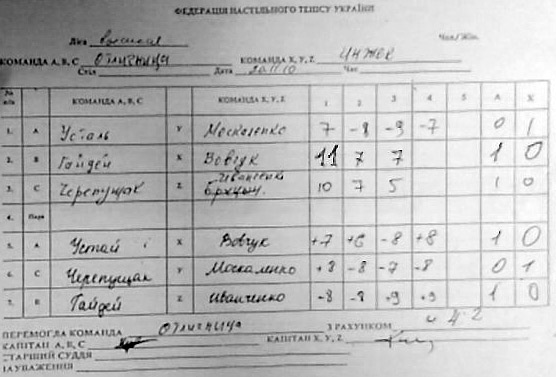 ФЕДЕРАЦІЯ НАСТІЛЬНОГО ТЕНІСУ УКРАЇНИ
Ліга высшая Чол/Жін.
КОМАНДА А, В, С Отличница КОМАНДА X, Y, Z Инжек
Стіл Дата 20.11.10 Час
№ п/п КОМАНДА А, В, С КОМАНДА X, Y, Z 1 2 3 4 5 А X
1. А Усталь Y Москаленко 7 -8 -9 -7 0 1
2. В Гайдей X Вовчук 11 7 7 1 0
3. С Черепущак Z Иванченко 10 7 5 1 0
4. Пара
5. А Устай X Вовчук +7 +6 -8 +8 1 0
6. С Черепущак Y Москаленко +8 -8 -7 -8 0 1
7. В Гайдей Z Иванченко -8 -8 +9 +9 1 0
ПЕРЕМОГЛА КОМАНДА Отличница З РАХУНКОМ 4-2
КАПІТАН А, В, С КАПІТАН X, Y, Z
СТАРШИЙ СУДДЯ
ЗАУВАЖЕННЯ